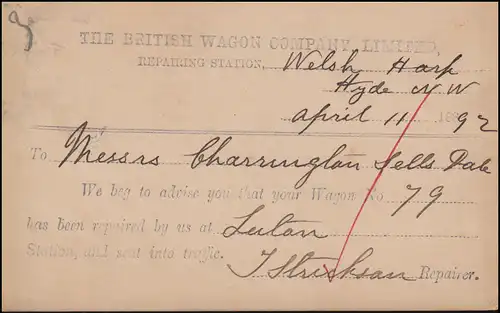 THE BRITISH WAGON COMPANY, LIMITED,
REPAIRING STATION, Welsh Harp
Hyde N W
April 11 1892
To Messrs Charrington Sells Dale
We beg to advise you that your Wagon No 79
has been repaired by us at Luton
Station, and sent into traffic.
Repairer.